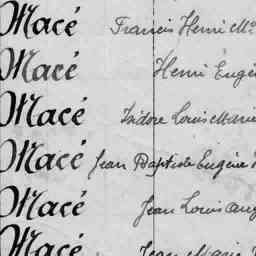 Macé Francis Henri M
Macé Henri Eugè
Macé Isidore Louis Marie
Macé Jean Baptiste Eugène
Macé Jean Louis Aug
Macé Jean Marie